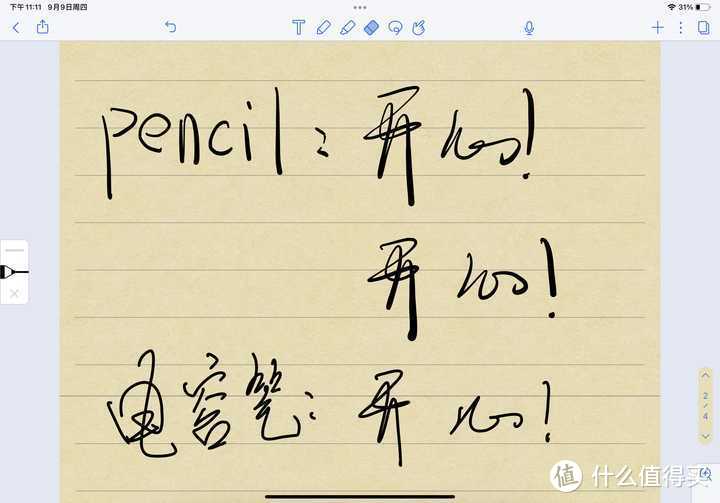 下午11:11 9月9日周四
31%
pencil：开心！
开心！
电容笔：开心！
2
4
值 什么值得买